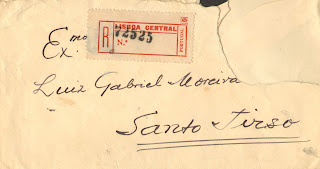 LISBOA CENTRAL
R 72525
N.º
PORTUGAL
Ex.mo
Luiz Gabriel Moreira
Santo Tirso